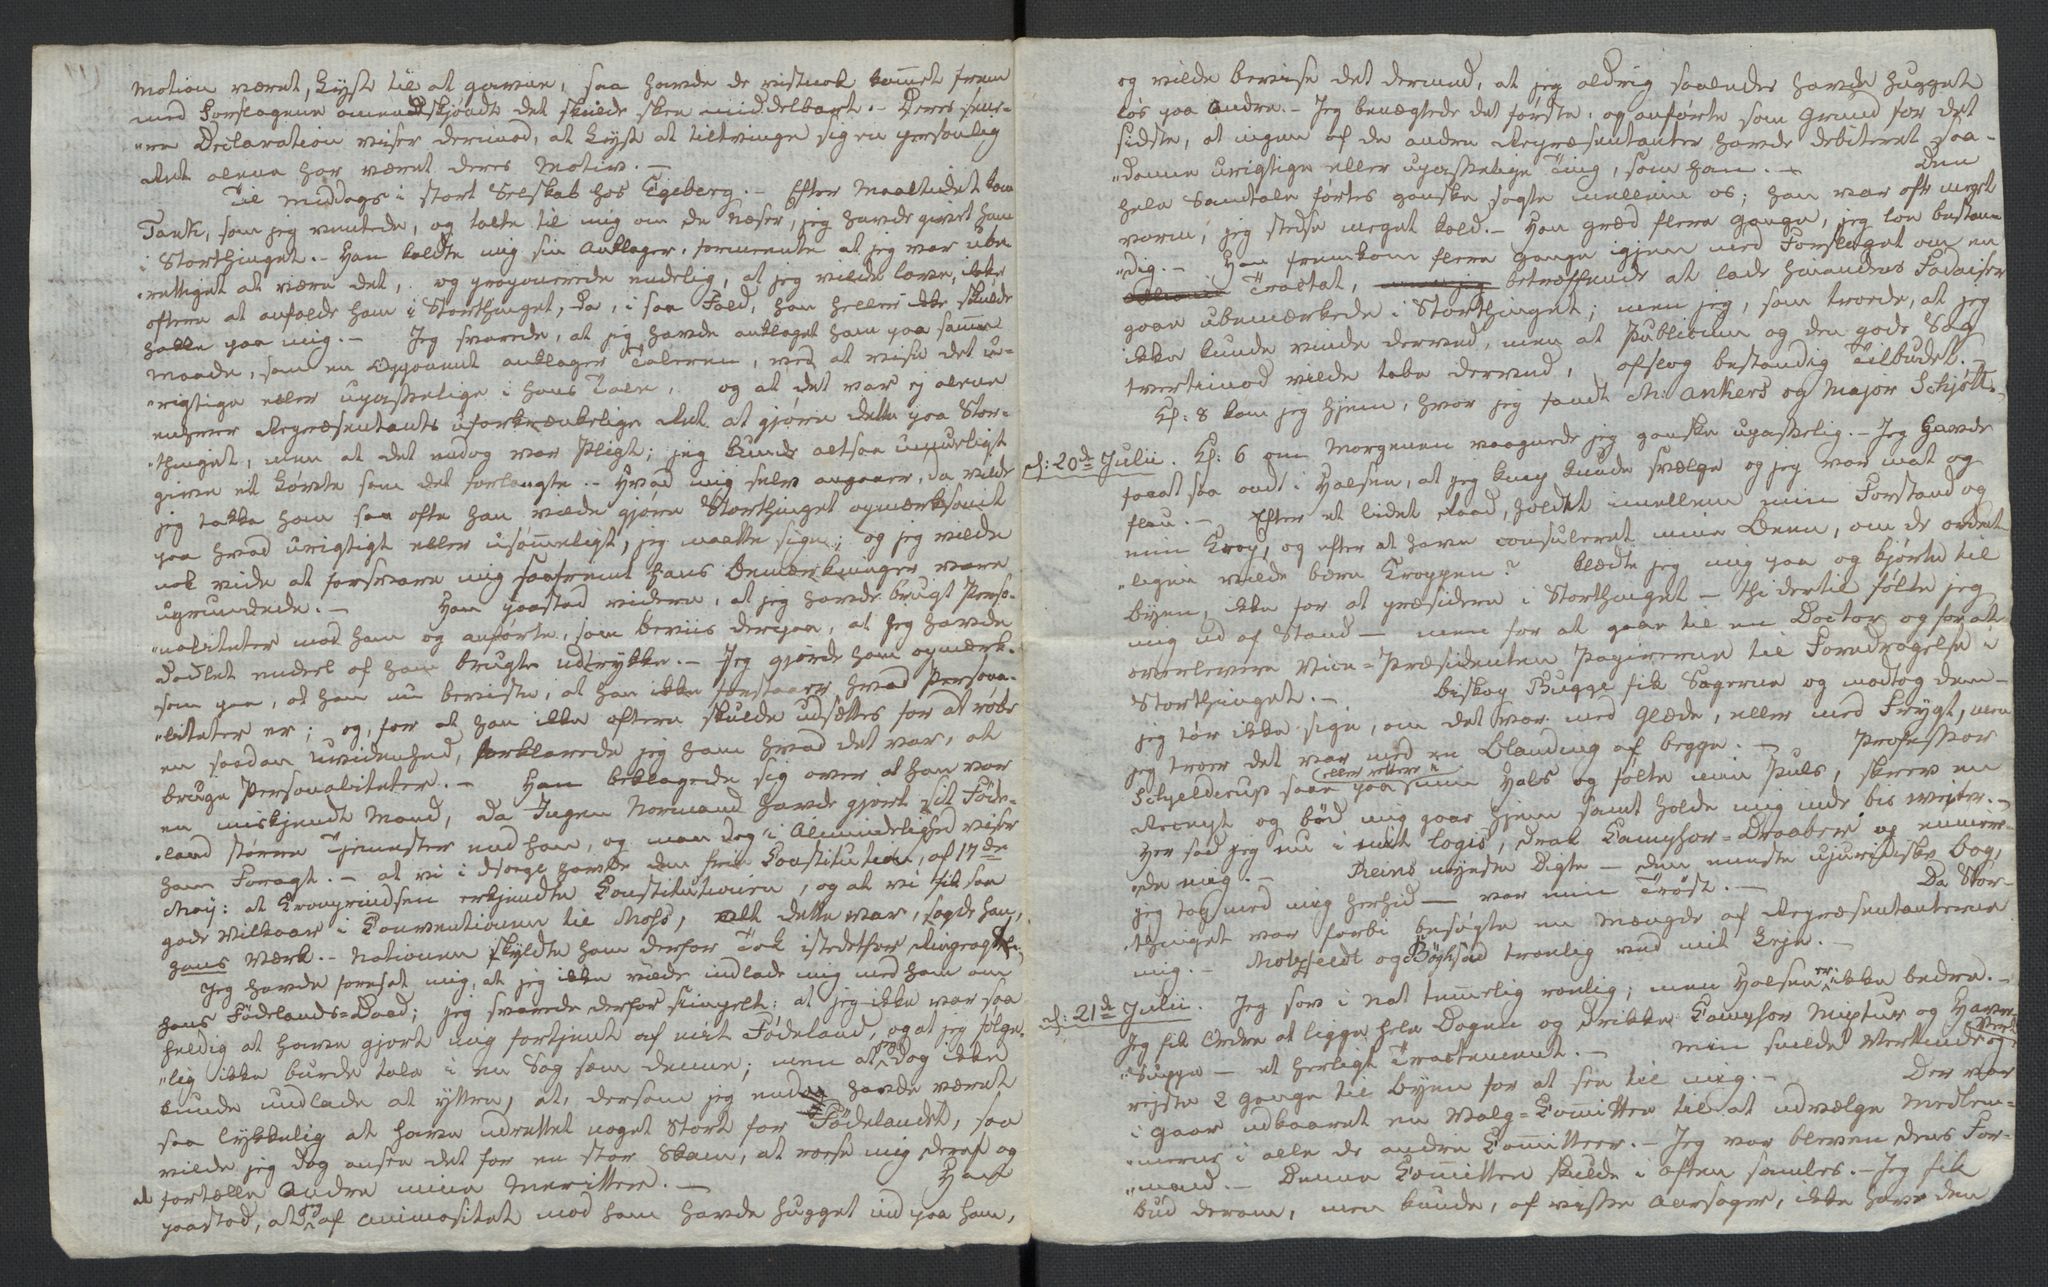 Motion været, Lyst til at gavne, saa havde de vistnok kommet frem
med Forslagene omendskjøndt det skulde skee middelbart. – Deres sene-
"re Declaration viser derimod, at Lyst at tiltvinge sig en personlig
Ret alene har været deres Motiv. –
Til Middags i stort Selskab hos Egeberg. – Efter Maaltidet kom
Tank, som jeg ventede, og talte til mig om de Næser, jeg havde givet ham
i Storthinget. – Han kaldte mig sin Anklager, formeente at jeg var ube
"rettiget at være det, og proponerede endelig, at jeg vilde love, ikke
oftere at anfalde ham i Storthinget, da, i saa Fald, han heller ikke skulde
hakke paa mig. – Jeg svarede, at jeg havde anklaget ham paa samme
Maade, som en Opponent anklager Taleren, ved at vise det u-
"rigtige eller upasselige i hans Tale, og at det var ej alene
enhver Repræsentants uforkrænkelige Ret at gjøre dette paa Stor-
"thinget, men at det endog var Pligt; jeg kunde altsaa umueligt
give et Løvte som det forlangte. – Hvad mig selv angaaer, da vilde
jeg takke ham saa ofte han vilde gjøre Storthinget opmærksomt
paa hvad urigtigt eller usømmeligt, jeg maatte sige; og jeg vilde
nok vide at forsvare mig saafremt hans Bemærkninger vare
ugrundede. – Han paastod videre, at jeg havde brugt Perso-
"naliteter mod ham og anførte, som beviis derpaa, at jeg havde
dadlet endeel af ham brugte udtrykke. – Jeg gjorde ham opmærk-
som paa, at han nu beviste, at han ikke forstaaer hvad Persona-
"liteter er; og, for at han ikke oftere skulde udsættes for at røbe
en saadan Uvidenhed, forklarede jeg ham hvad det var, at
bruge Personaliteter. – Han beklagede sig over at han var
en miskjendt Mand, da Ingen Normand havde gjort sit Føde-
"land større Tjenester end han, og man dog i Almindelighed viser
ham Foragt. – at vi i Norge havde den frie Constitution, af 17de
May: at Cronprindsen erkjendte Constitutionen, og at vi fik saa
gode Vilkaar i Conventionen til Moss, alt dette var, sagde han,
hans Værk. – Nationen skyldte ham derfor Tak istedetfor Ringeagt.
Jeg havde foresat mig, at jeg ikke vilde indlade mig med ham om
hans Fødelands-Daad; jeg svarede derfor simpelt: at jeg ikke var saa
heldig at have gjort mig fortjent af mit Fødeland, og at jeg følge-
"lig ikke burde tale i en Sag som denne; men at jeg dog ikke
kunde undlade at yttre, at, dersom jeg endog havde været
saa lykkelig at have udrettet noget stort for Fødelandet, saa
vilde jeg dog ansee det for en stor Skam, at rose mig deraf og
at fortælle Andre mine Meritter. – Han
paastod, at jeg af Animositet mod ham havde hugget ind paa ham,
og vilde bevise det dermed, at jeg aldrig saaledes havde hugget
løs paa Andre. – Jeg benægtede det første, og anførte som Grund for det
sidste, at ingen af de andre Repræsentanter havde debiteret saa-
"danne urigtige eller upasselige Ting, som han. – Den
hele Samtale førtes ganske sagte imellem os; han var ofte meget
varm, jeg stedse meget kold. – Han græd flere Gange, jeg loe bestan-
"dig. – Han fremkom flere Gange igjen med Forslaget om en
Tractat, betræffende at lade hinandens Fadaiser
gaae ubemærkede i Storthinget; men jeg, som troede, at jeg
ikke kunde vinde derved, men at Publicum og den gode Sag
tvertimod vilde tabe derved, afslog bestandig Tilbudet. –
Kl: 8 kom jeg hjem, hvor jeg fandt M: Ankers og Major Schjøtt.
d: 20de Julii. Kl: 6 om Morgenen vaagnede jeg ganske upasselig. – Jeg havde
faaet saa ondt i Halsen, at jeg knap kunde svælge og jeg var mat og
flau. – Efter et lidet Raad, holdt imellem min Forstand og
min Krop, og efter at have consuleret mine Been, om de ordent-
"ligen vilde bære Kroppen? klædte jeg mig paa og kjørte til
Byen, ikke for at præsidere i Storthinget – thi dertil følte jeg
mig ud af Stand – men for at gaae til en Doctor og for at
overlevere Vice-Præsidenten Papirerne til Foredragelse i
Storthinget. – Biskop Bugge fik Sagerne og modtog dem –
jeg tør ikke sige, om det var med Glæde, eller med Frygt, men
jeg troer det var med en Blanding af begge. – Professor
Schjelderup saae paa (eller rettere i) min Hals og følte min Puls, skrev en
Recept og bød mig gaae hjem samt holde mig inde bis weiter. –
Her sad jeg nu i mit Logis, drak Camphor-Draaber og ennuye-
"rede mig. – Reins nyeste Digte – den eneste ujuridiske Bog,
jeg tog med mig herhid – var min Trøst. – Da Stor-
"thinget var forbi besøgte en Mængde af Repræsentanterne
mig. – Motzfeldt og Bøghsad troelig ved mit Leje. –
d: 21de Julii. Jeg sov i Nat temmelig roelig; men Halsen er ikke bedre. –
Jeg fik Ordre at ligge hele Dagen og drikke Camphor Mixtur og Havre-
"Suppe – et herligt Tractement. – Min snilde Vertinde og Vert
rejste 2 Gange til Byen for at see til mig. – Der var
i Gaar udkaaret en Valg-Committee til at udvælge Medlem-
"merne i alle de andre Committeer. – Jeg var bleven dens For-
"mand. – Denne Committee skulde i Aften samles. – Jeg fik
Bud derom, men kunde, af visse Aarsager, ikke have den